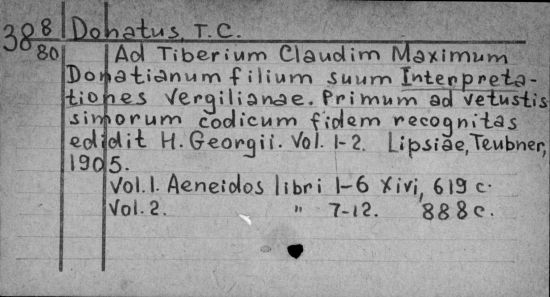 388 Donatus, T.C.
80 Ad Tiberium Claudim Maximum
Donatianum filium suum Interpreta-
tiones Vergilianae. Primum ad vetustis
simorum codicum fidem recognitas
edidit H. Georgii. Vol. 1-2. Lipsiae, Teubner,
1905.
Vol. 1. Aeneidos libri 1-6 Xivi, 619 c.
Vol. 2. " 7-12. 888 c.